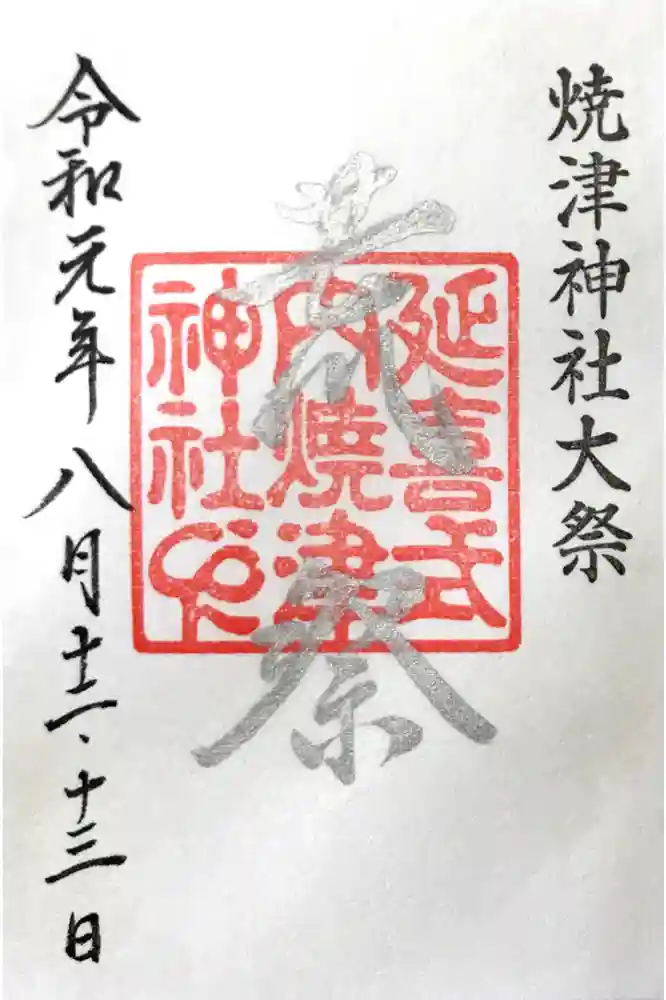 焼津神社大祭
延喜式
内焼津
神社印
荒祭
令和元年八月十二・十三日